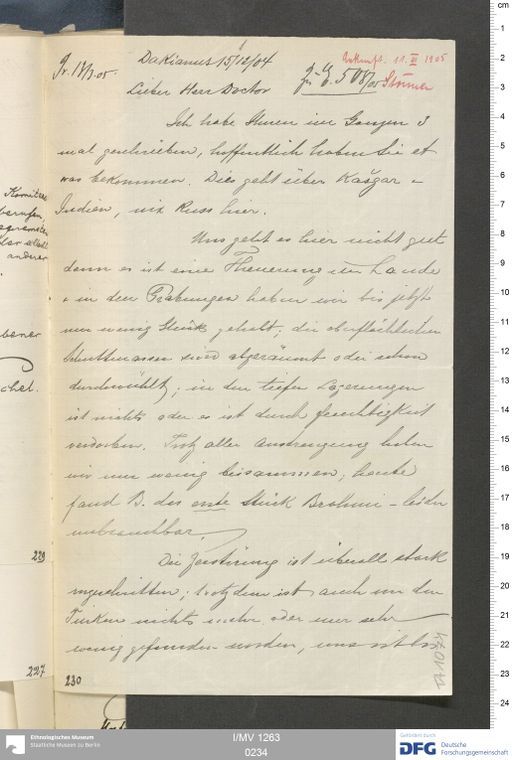 Pr. 13/3.05.
Dakianus 15/12/04
Ankunft. 11. III 1905
zu E. 508/05 Stönner
Lieber Herr Doctor
Ich habe Ihnen im Ganzen 3
mal geschrieben, hoffentlich haben Sie et
was bekommen. Dies geht über Kašgar –
Indien, nix Russ hier.
Uns geht es hier nicht gut
denn es ist eine Theuerung im Lande
+ in den Grabungen haben wir bis jetzt
nur wenig Glück gehabt; die oberflächlichen
Schuttmassen sind abgeräumt oder schon
durchwühlt; in den tiefen Lagerungen
ist nichts oder es ist durch feuchtigkeit
verdorben. Trotz aller Anstrengung haben
wir nur wenig beisammen; heute
fand B. das erste Stück Brahmi – leider
unbrauchbar.
Die Zerstörung ist überall stark
ist auch von den
Türken nichts mehr, oder nur sehr
wenig gefunden worden, uns
Komitee
berufen,
anderer
229
227
230
TA 1074
cm
1
2
3
4
5
6
7
8
9
10
11
12
13
14
15
16
17
18
19
20
21
22
23
24
Ethnologisches Museum
Staatliche Museen zu Berlin
I/MV 1263
0234
Gefördert durch
DFG Deutsche
Forschungsgemeinschaft